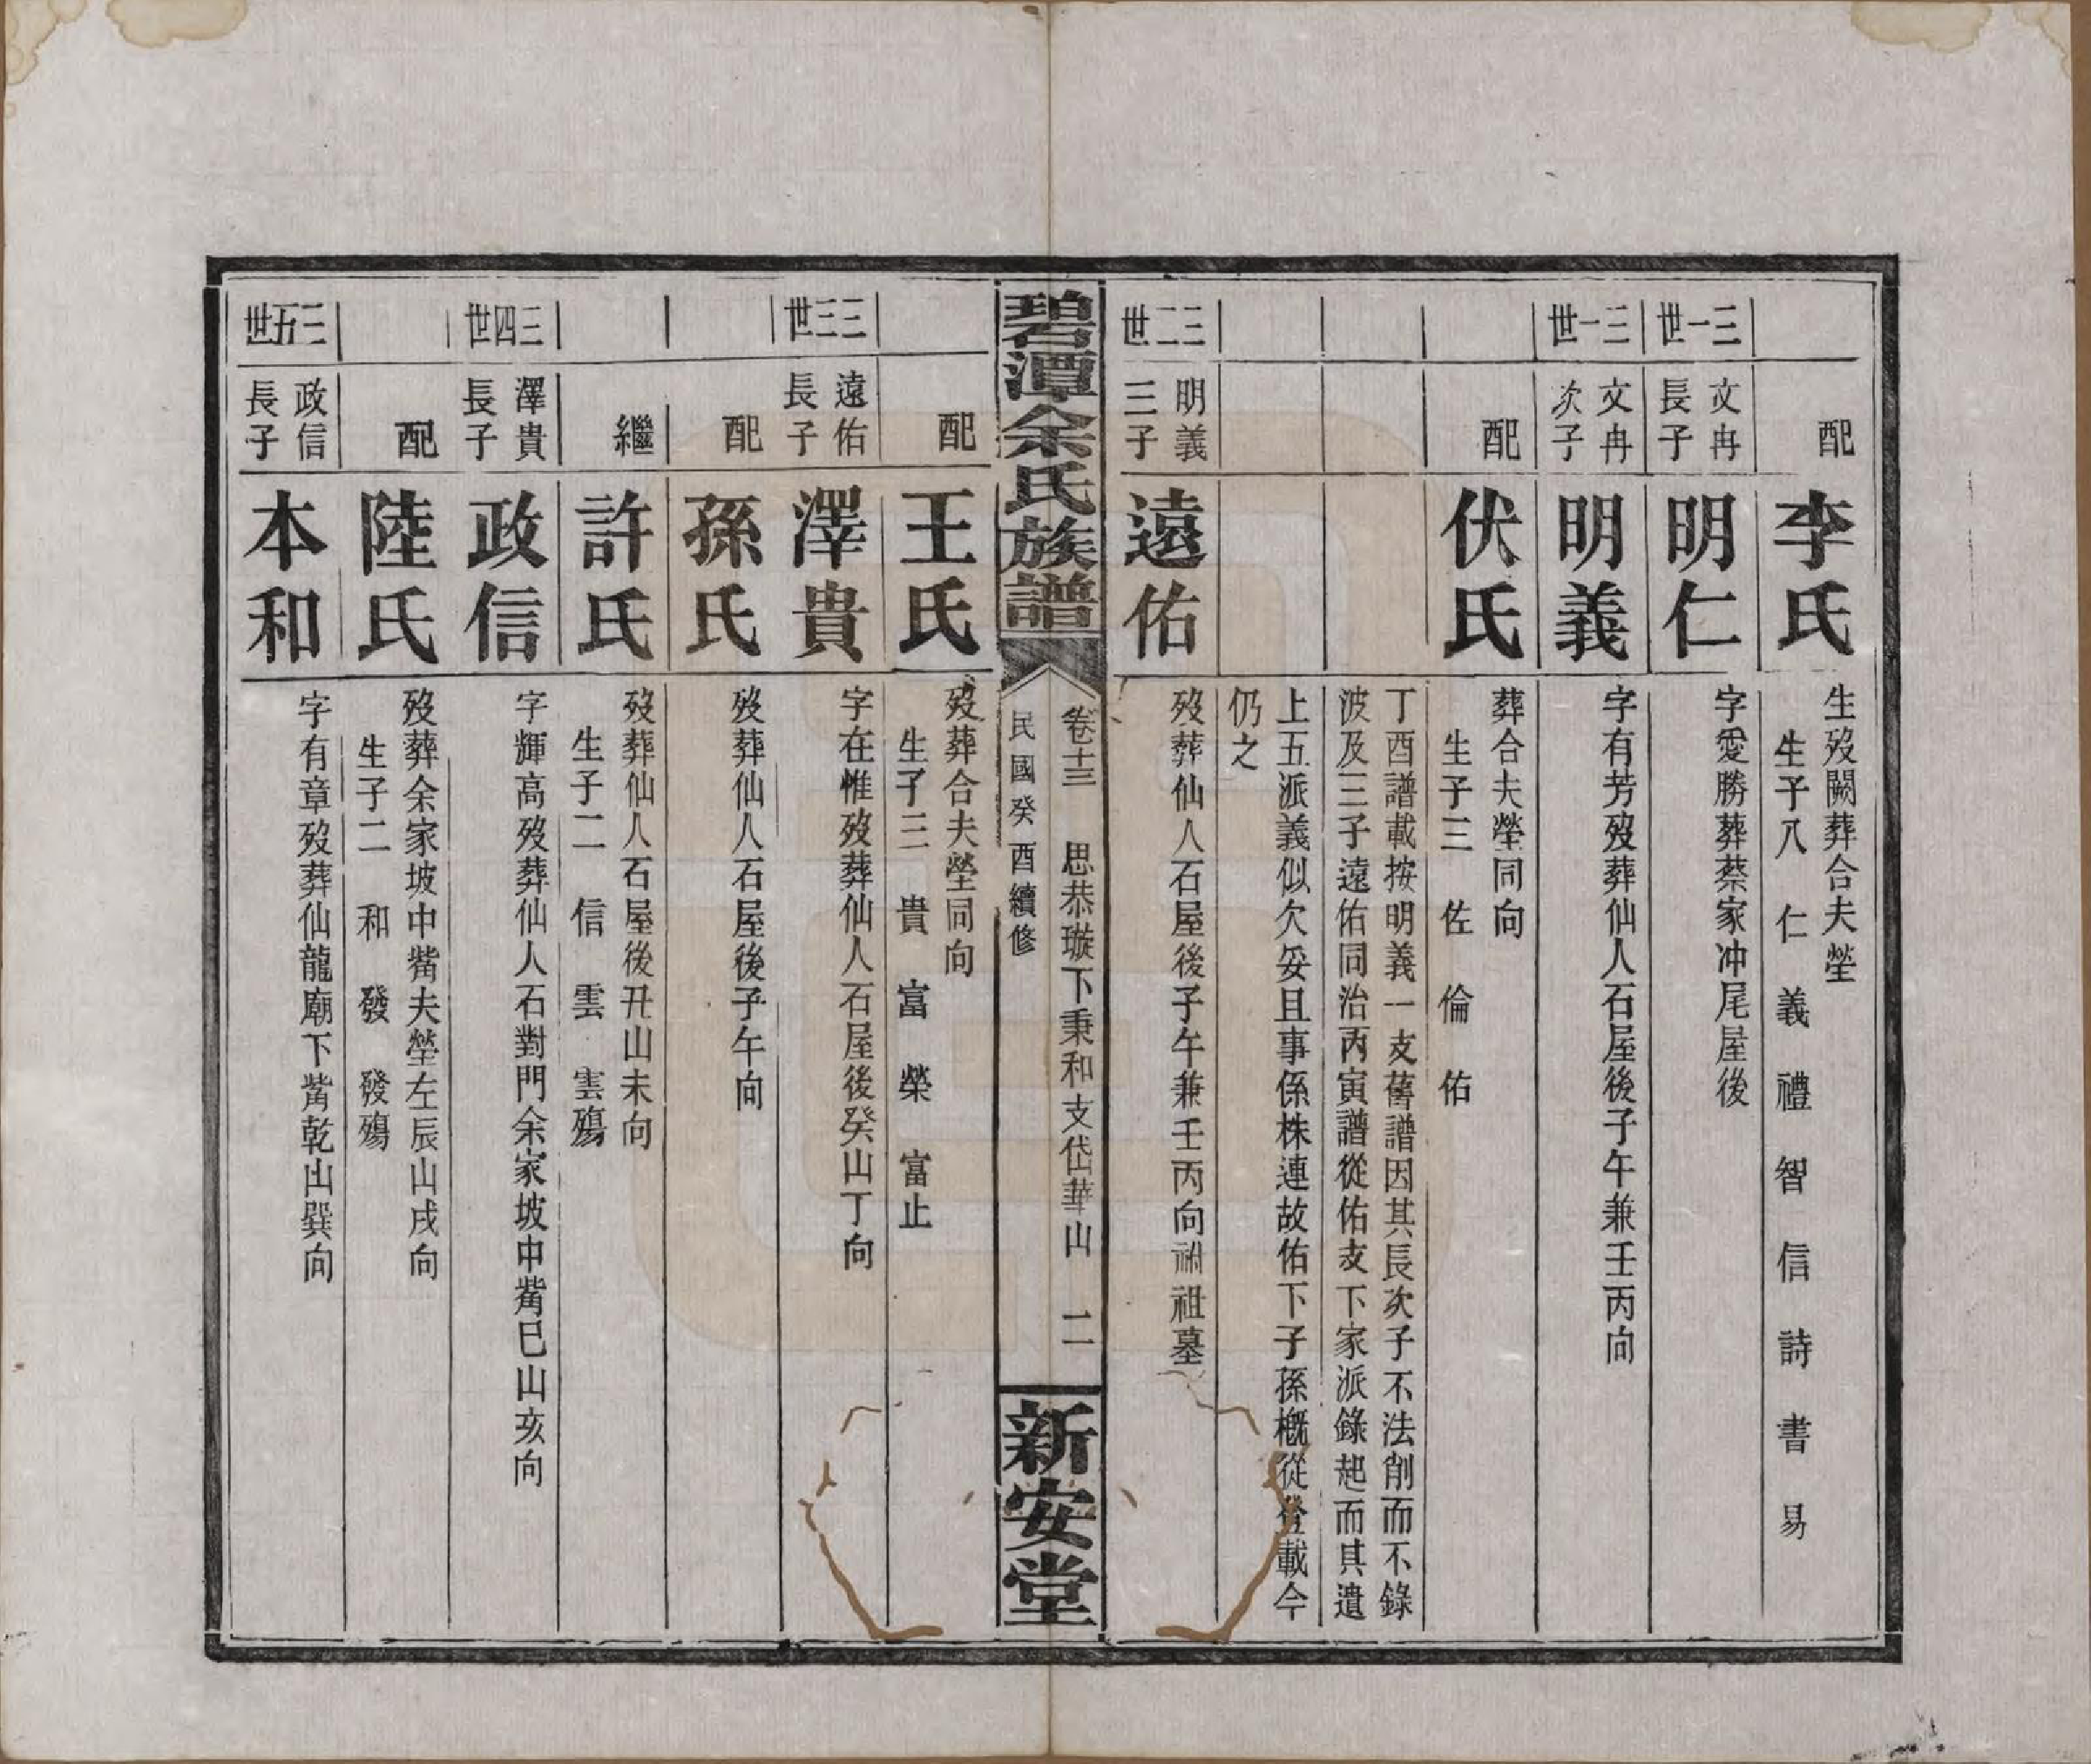 配
李氏
生歿闕葬合夫塋
生子八 仁 義 禮 智 信 詩 書 易
三一世
文冉
長子
明仁
字愛勝葬蔡家冲尾屋後
三一世
文冉
次子
明義
字有芳歿葬仙人石屋後子午兼壬丙向
配
伏氏
葬合夫塋同向
生子三 佐 倫 佑
丁酉譜載按明義一支舊譜因其長次子不法削而不錄
波及三子遠佑同治丙寅譜從佑支下家派錄起而其遺
上五派義似欠妥且事係株連故佑下子孫槪從登載今
仍之
三二世
明義
三子
遠佑
歿葬仙人石屋後子午兼壬丙向祔祖墓
碧潭余氏族譜
卷十三 思恭璇下秉和支岱華山 二
民國癸酉續修
新安堂
配
王氏
歿葬合夫塋同向
生子三 貴 富 榮 富止
三三世
遠佑
長子
澤貴
字在惟歿葬仙人石屋後癸山丁向
配
孫氏
歿葬仙人石屋後子午向
繼
許氏
歿葬仙人石屋後丑山未向
生子二 信 雲 雲殤
三四世
澤貴
長子
政信
字輝高歿葬仙人石對門余家坡中觜巳山亥向
配
陸氏
歿葬余家坡中觜夫塋左辰山戌向
生子二 和 發 發殤
三五世
政信
長子
本和
字有章歿葬仙龍廟下觜乾山巽向